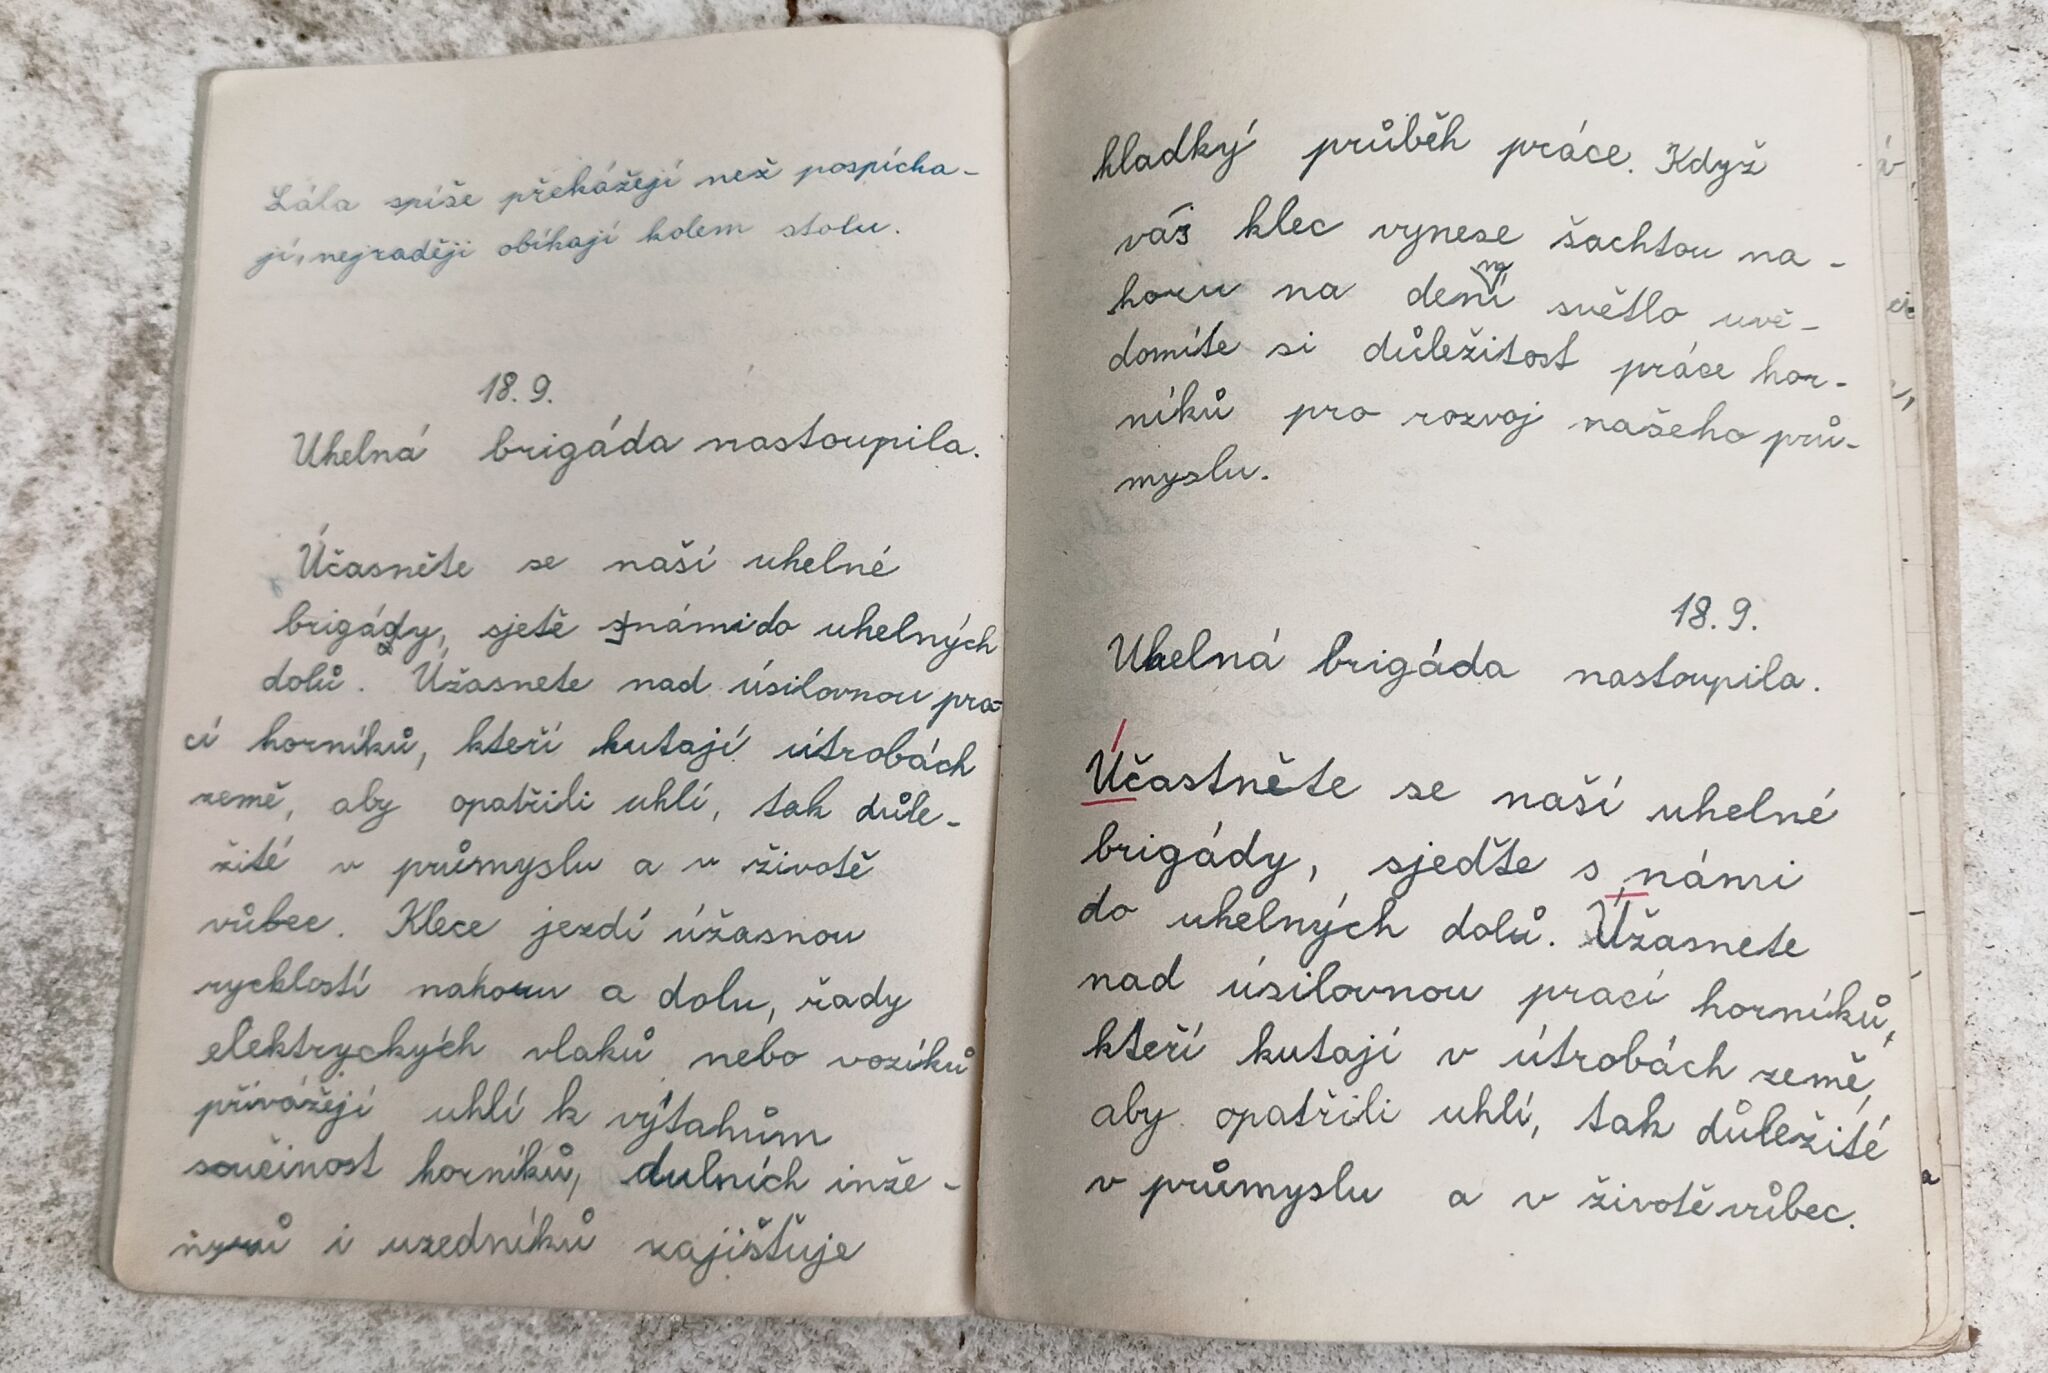 Lála spíše překážejí než pospícha-
jí, nejraději obíhají kolem stolu.
18. 9.
Uhelná brigáda nastoupila.
Účasněte se naší uhelné
brigády, sjetě s námi do uhelných
dolů. Úžasnete nad úsilovnou pra-
cí horníků, kteří kutají útrobách
země, aby opatřili uhlí, tak důle-
žité v průmyslu a v životě
vůbec. Klece jezdí úžasnou
rychlostí nahoru a dolu, řady
elektryckých vlaků nebo vozíků
přivážejí uhlí k výtahům
součinost horníků, dulních inže-
nyrů i uzedníků zajišťuje
hladký průběh práce. Když
vás klec vynese šachtou na-
horu na denní světlo uvě-
domíte si důležitost práce hor-
níků pro rozvoj našeho prů-
myslu.
18. 9.
Uhelná brigáda nastoupila.
Účastněte se naší uhelné
brigády, sjeďte s námi
do uhelných dolů. Úžasnete
nad úsilovnou prací horníků,
kteří kutají v útrobách země,
aby opatřili uhlí, tak důležité
v průmyslu a v životě vůbec.